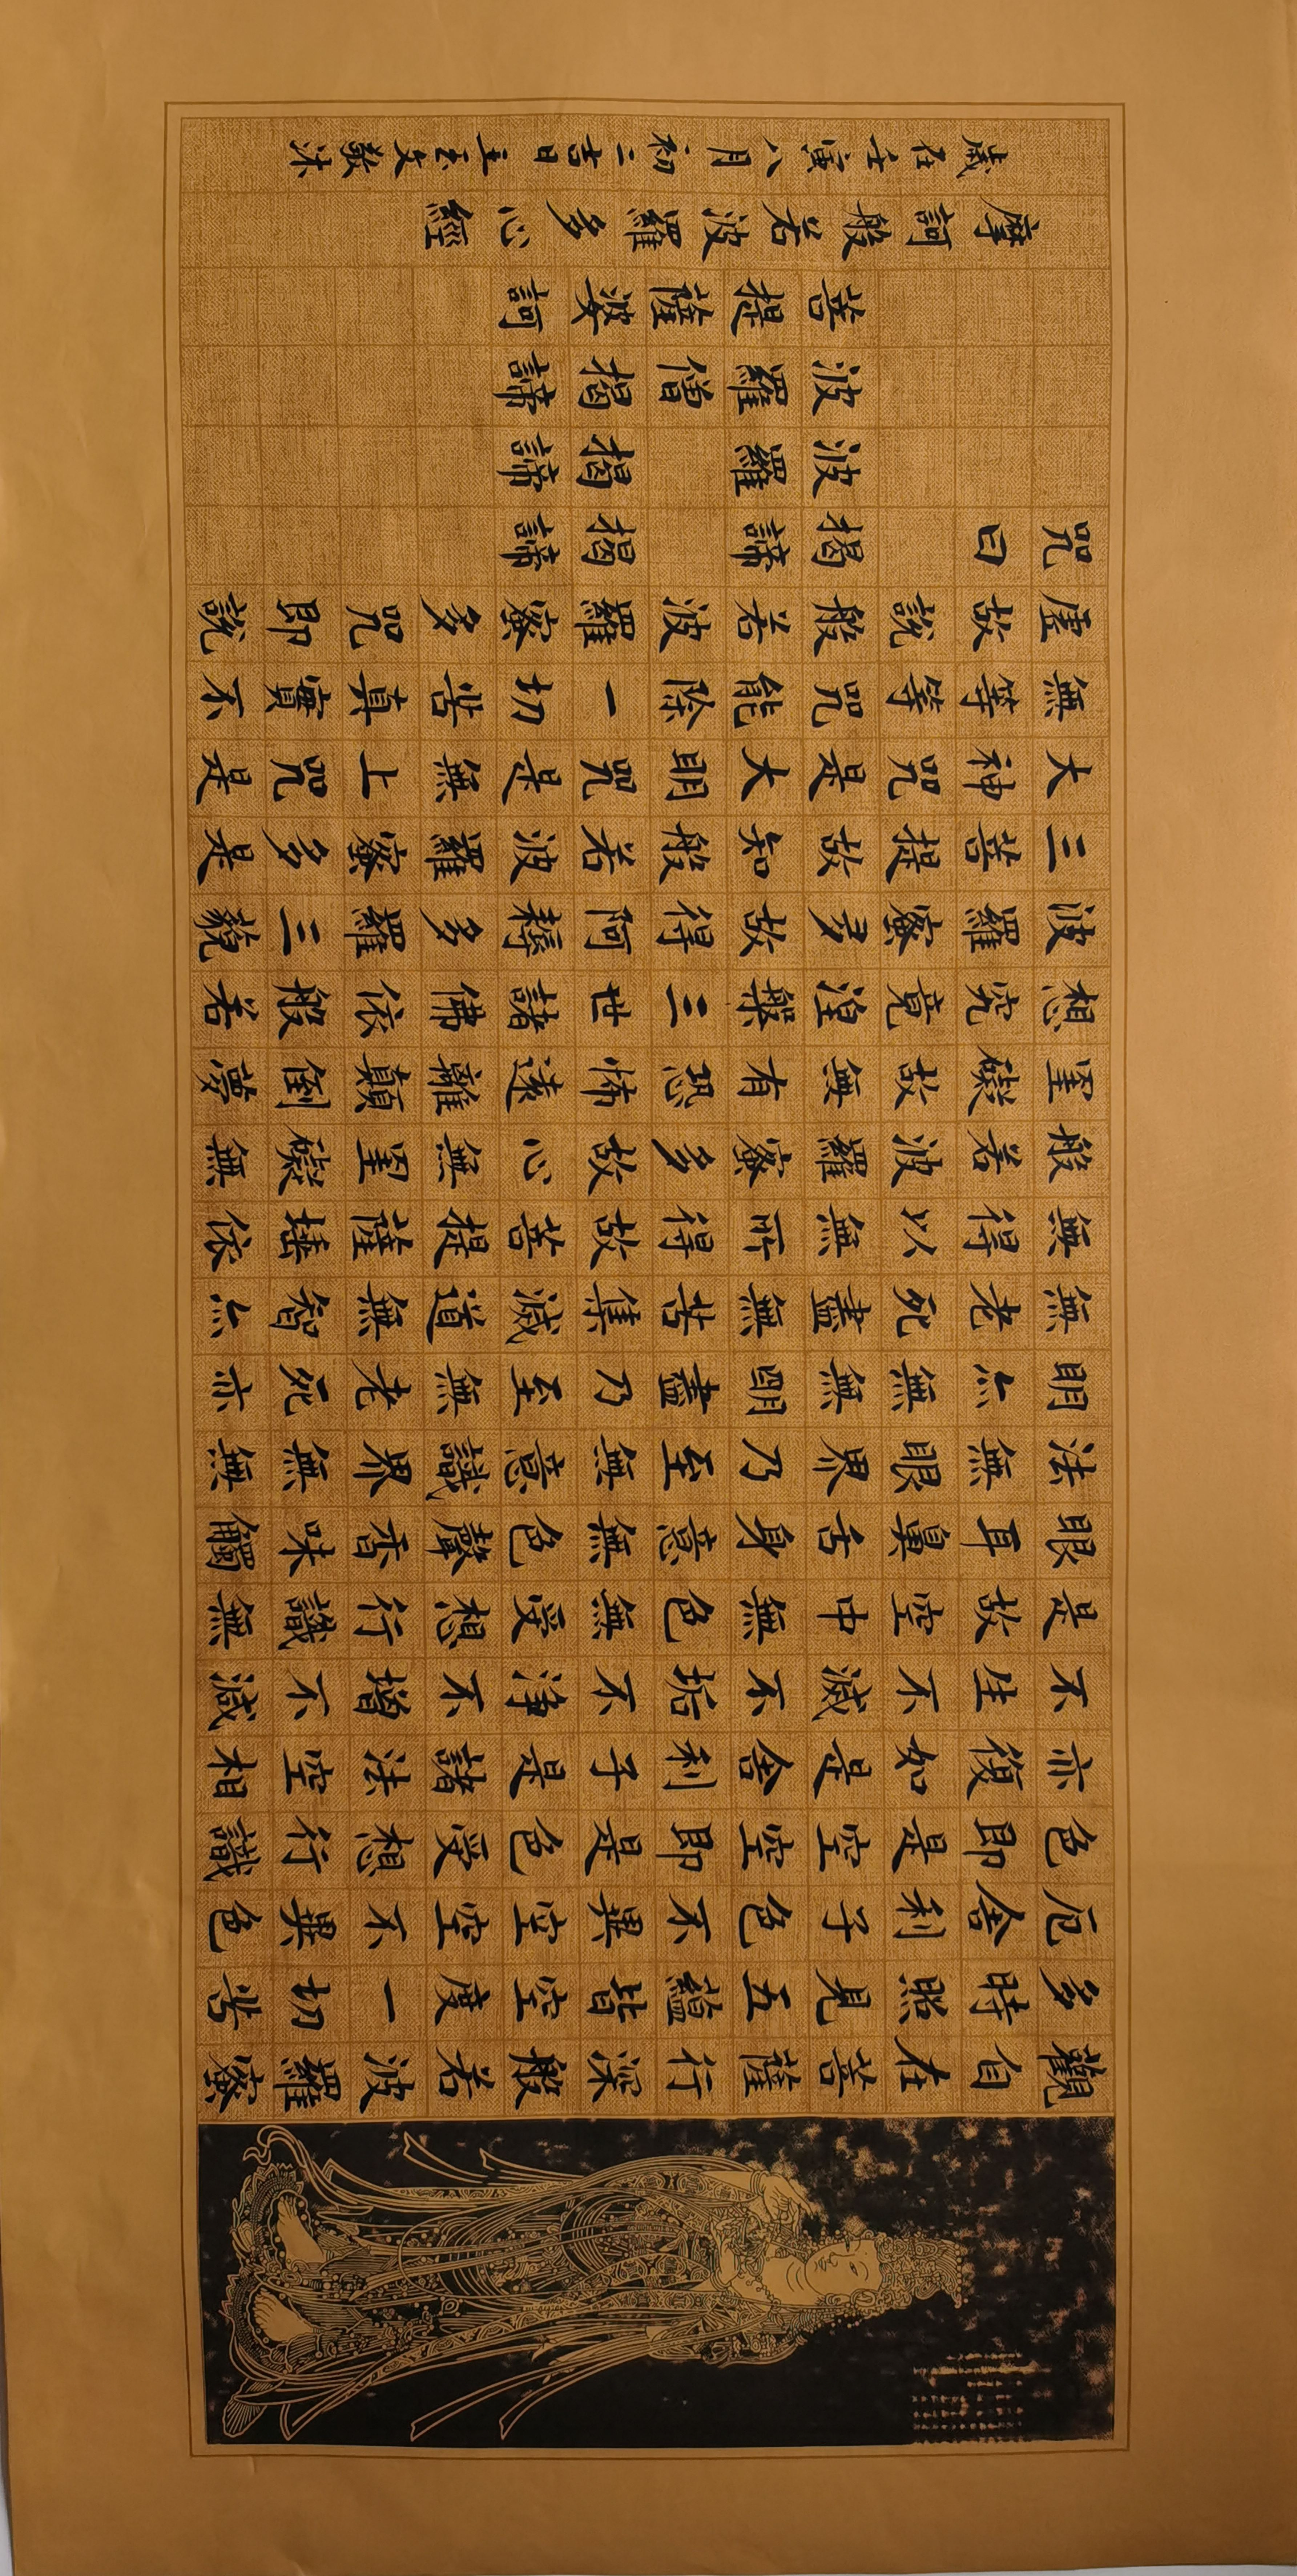 觀自在菩薩行深般若波羅蜜
多時照見五蘊皆空度一切苦
厄舍利子色不異空空不異色
色即是空空即是色受想行識
亦復如是舍利子是諸法空相
不生不滅不垢不淨不增不減
是故空中無色無受想行識無
眼耳鼻舌身意無色聲香味觸
法無眼界乃至無意識界無無
明亦無無明盡乃至無老死亦
無老死盡無苦集滅道無智亦
無得以無所得故菩提薩埵依
般若波羅蜜多故心無罣礙無
罣礙故無有恐怖遠離顛倒夢
想究竟涅槃三世諸佛依般若
波羅蜜多故得阿耨多羅三藐
三菩提故知般若波羅蜜多是
大神咒是大明咒是無上咒是
無等等咒能除一切苦真實不
虛故說般若波羅蜜多咒即說
咒曰 揭諦 揭諦
波羅 揭諦
波羅僧揭諦
菩提薩婆訶
摩訶般若波羅多心經
歲在壬寅八月初二吉日王玉文敬沐